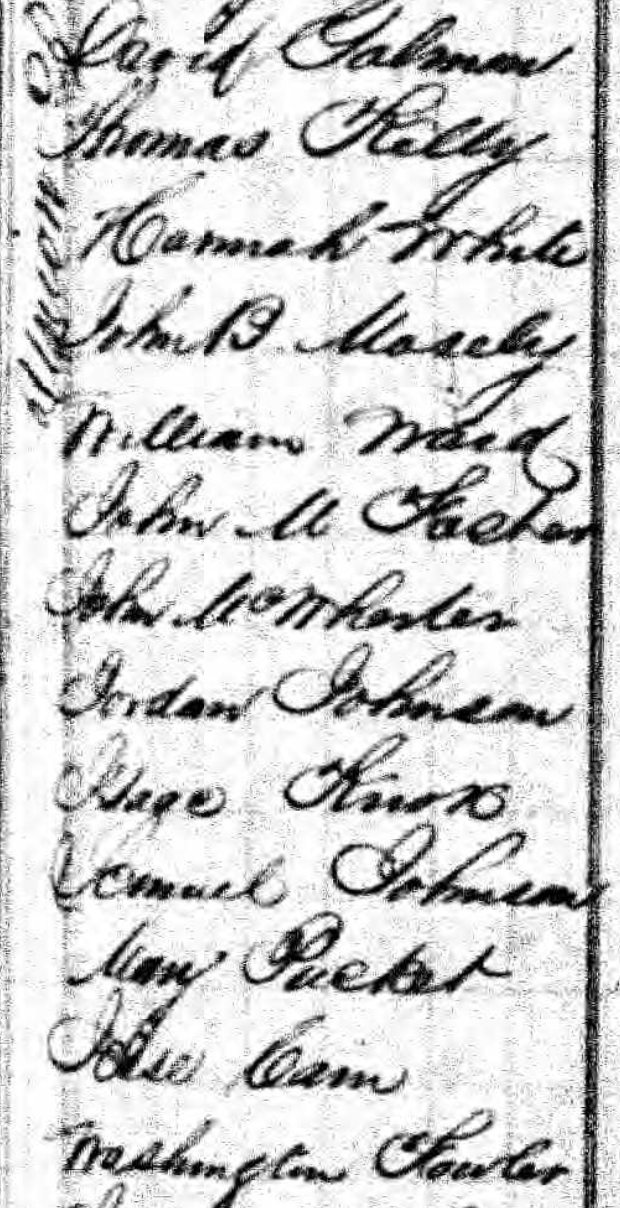 David Galman
Thomas Killy
Hannah White
John B Mosely
William Ward
John M
John McWhorter
Jordan Johnson
Knox
Samuel Johnson
Mary Pucket
Cain
Washington Fowler